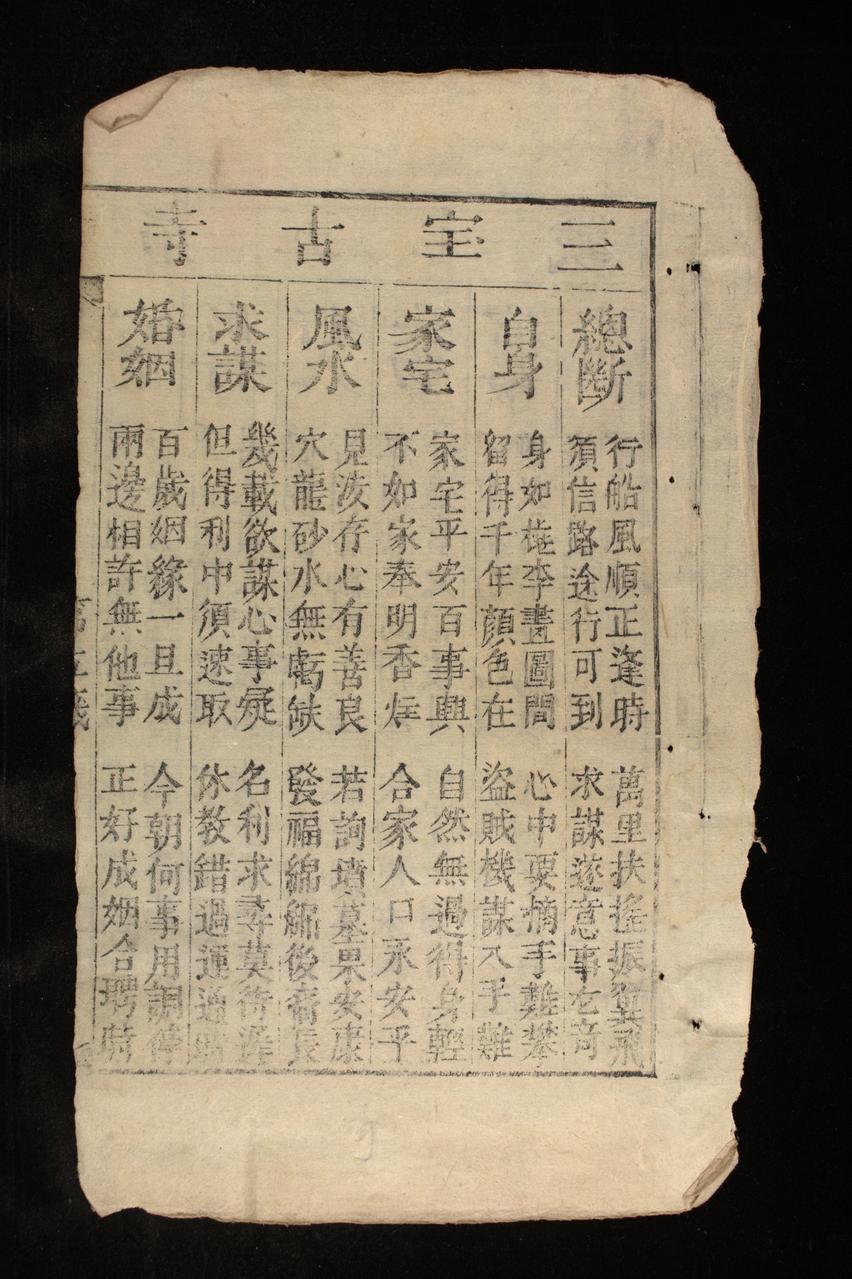 三宝古寺
總斷
行船風順正逢時 萬里扶搖振翼飛
須信路途行可到 求謀遂意事玄奇
自身
身如桃李畫圖間 心中要摘手難攀
留得千年顏色在 盜賊機謀入手難
家宅
家宅平安百事興 自然無過得身輕
不如家奉明香炷 合家人口永安乎
風水
見汝存心有善良 若詢墳墓果安康
穴龍砂水無虧缺 發福綿綿後裔長
求謀
幾載欲謀心事疑 名利求尋莫待遲
但得利中須速取 休教錯過運通時
婚姻
百歲姻緣一旦成 今朝何事用調停
兩邊相許無他事 正好成姻合聘